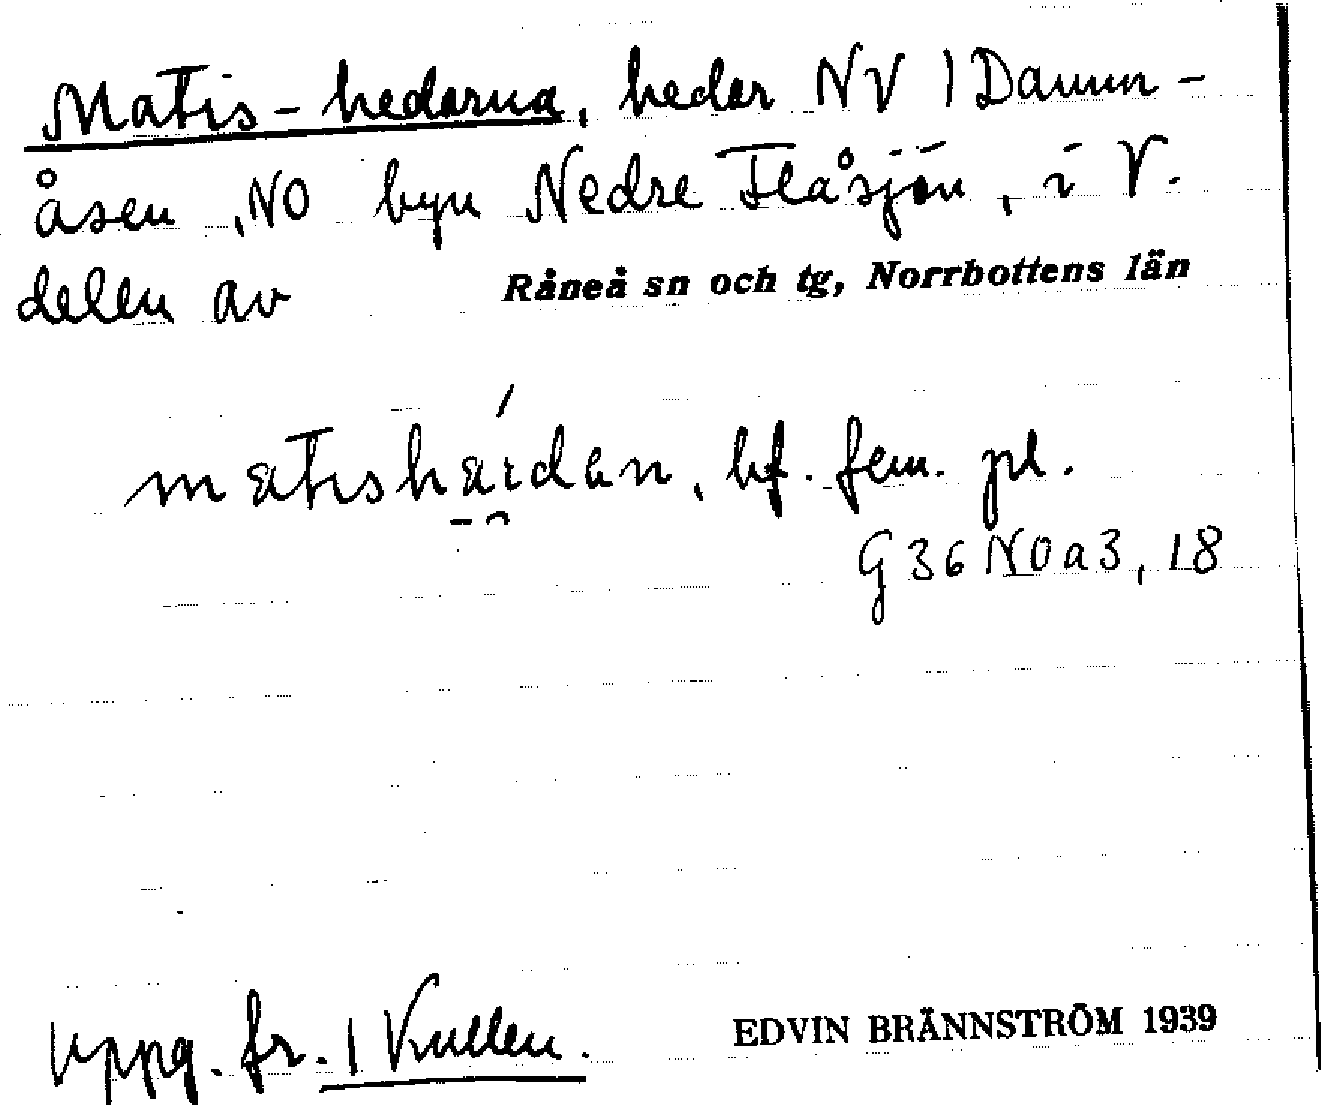 Matis-hedarna, hedar NV /Damm-
åsen, NO byn Nedre Flåsjön, i V.
delen av Råneå sn och tg, Norrbottens län
matishäidan, bf. fem. pl.
G 36 NO a 3, 18
Uppg. fr. / Kullen.
EDVIN BRÄNNSTRÖM 1939